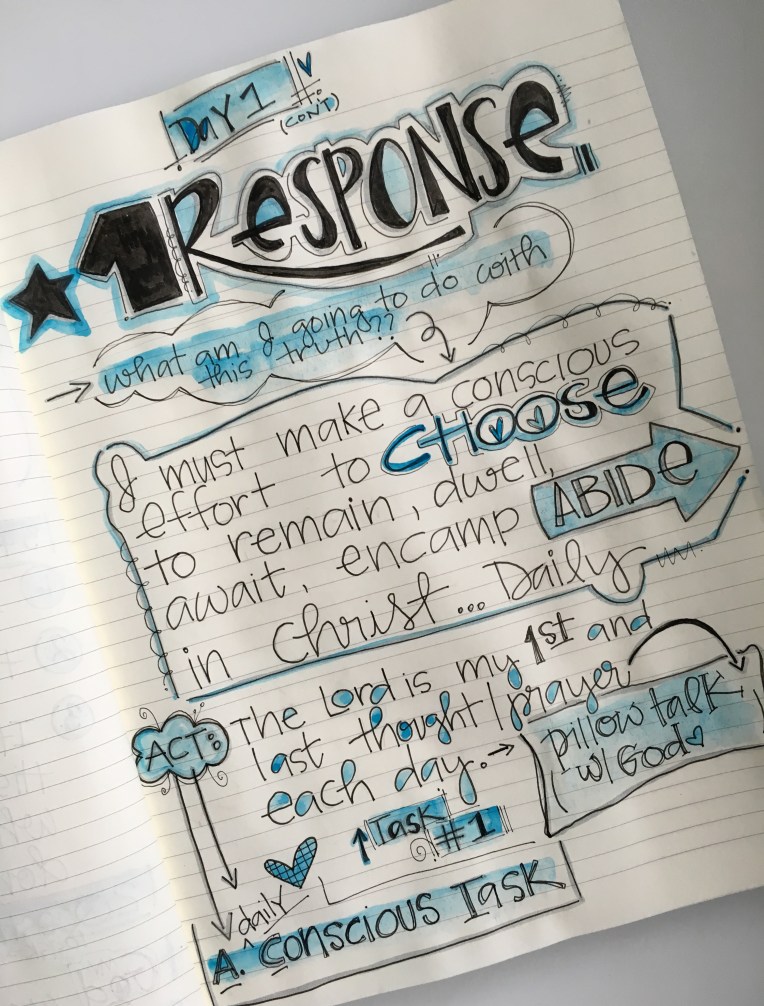 Day 1
(CON'T)
1 Response.
what am I going to do with
this truth??
I must make a conscious
effort to CHOOSE
to remain, dwell,
await, encamp ABIDE
in Christ... Daily
ACT: The Lord is my 1st and
last thought / prayer
each day. → Pillow talk
w/ God
Task
#1
daily
A. Conscious Task